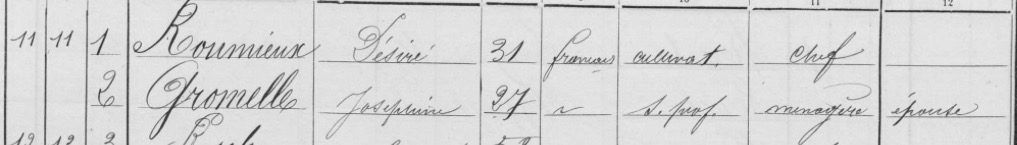 11 12
11 11 1 Roumieux Désiré 31 français cultivat. chef
2 Gromelle Joséphine 27 ~ s. prof. menagère épouse
12 12 3